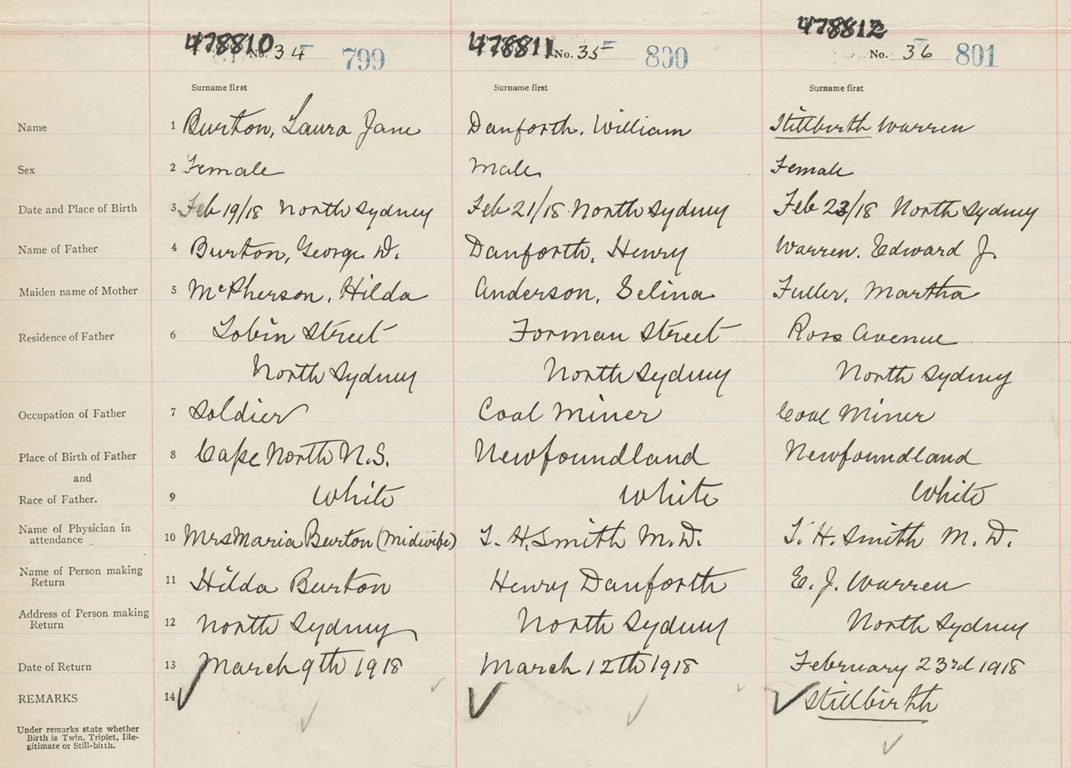 478810 No. 34 799 478811 No. 35 800 478812 No. 36 801
Surname first Surname first Surname first
Name 1 Burton, Laura Jane Danforth, William Stillbirth Warren
Sex 2 Female Male Female
Date and Place of Birth 3 Feb 19/18 North Sydney Feb 21/18 North Sydney Feb 23/18 North Sydney
Name of Father 4 Burton, George W. Danforth, Henry Warren. Edward J.
Maiden name of Mother 5 McPherson, Hilda Anderson, Selina Fuller, Martha
Residence of Father 6 Street Forman Street Ross Avenue
North Sydney North Sydney North Sydney
Occupation of Father 7 Soldier Coal Miner Coal Miner
Place of Birth of Father 8 Cape North N.S. Newfoundland Newfoundland
and
Race of Father. 9 White White White
Name of Physician in
attendance 10 Mrs Maria Burton (Midwife) T. H. Smith M.D. T. H. Smith M.D.
Name of Person making
Return 11 Hilda Burton Henry Danforth E. J. Warren
Address of Person making
Return 12 North Sydney North Sydney North Sydney
Date of Return 13 March 9th 1918 March 12th 1918 February 23rd 1918
REMARKS 14 Stillbirth
Under remarks state whether
Birth is Twin, Triplet, Ille-
gitimate or Still-birth.